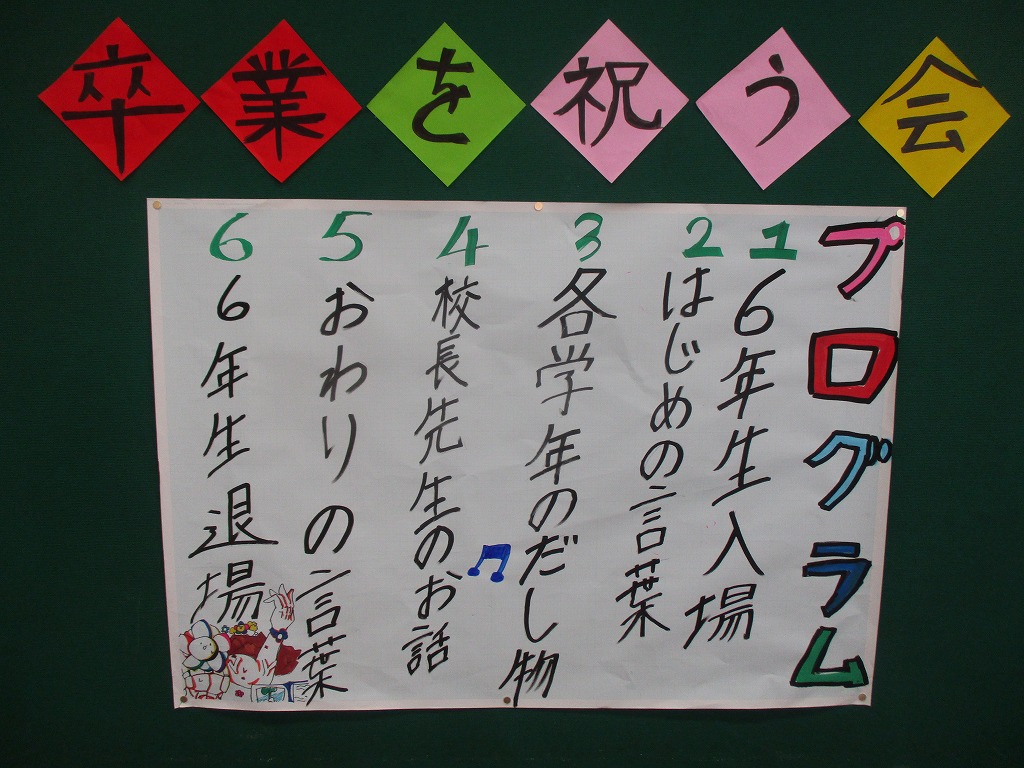 卒業を祝う会
プログラム
1 6年生入場
2 はじめの言葉
3 各学年のだし物
4 校長先生のお話
5 おわりの言葉
6 6年生退場